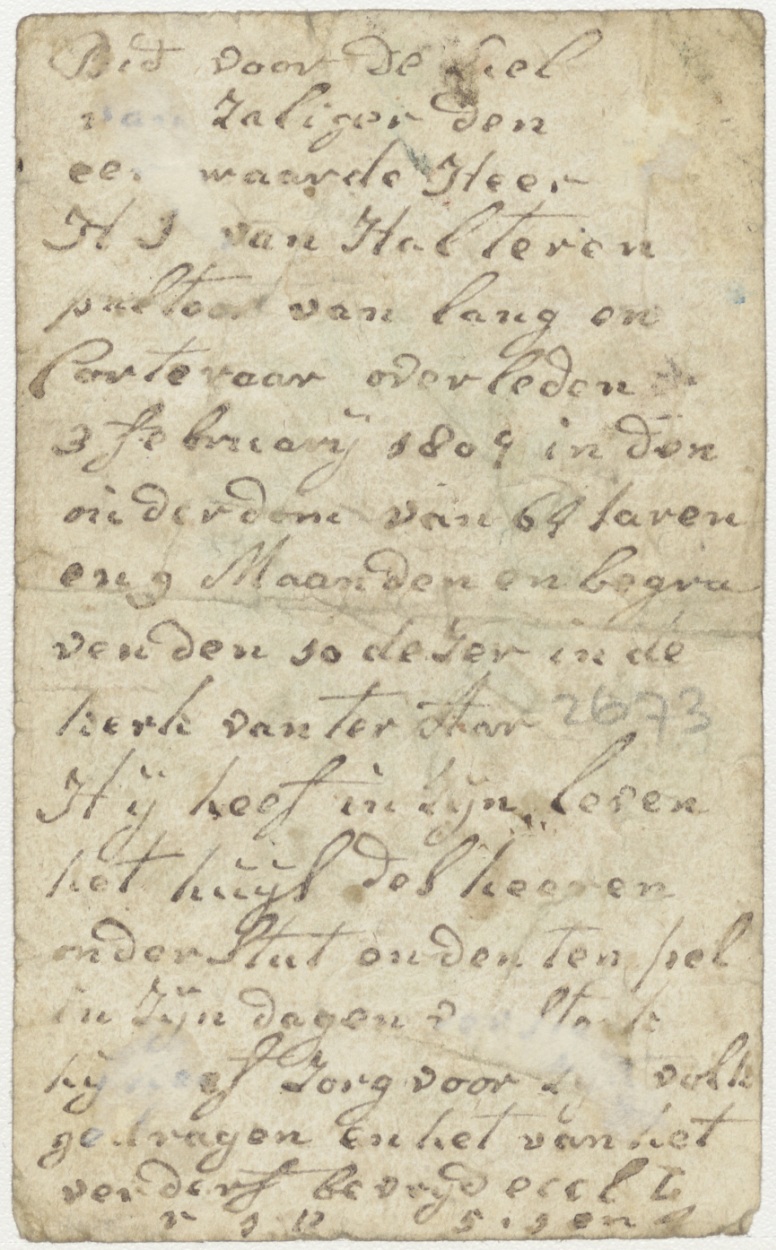 Bid voor de siel
van Zaliger den
eer waarde Heer
H J van Halteren
pastoor van lang en
Corteraar overleden
3 february 1809 in den
ouderdom van 64 Jaren
en 9 Maanden en begra
ven den 10 dezer in de
kerk van ter Aar 2673
Hij heef in Zijn leven
het huijs des heeren
onderstut en den tempel
in Zijn dagen versterkt
hij heef Zorg voor Zijn volk
gedragen en het van het
verderf bevrijd eccl